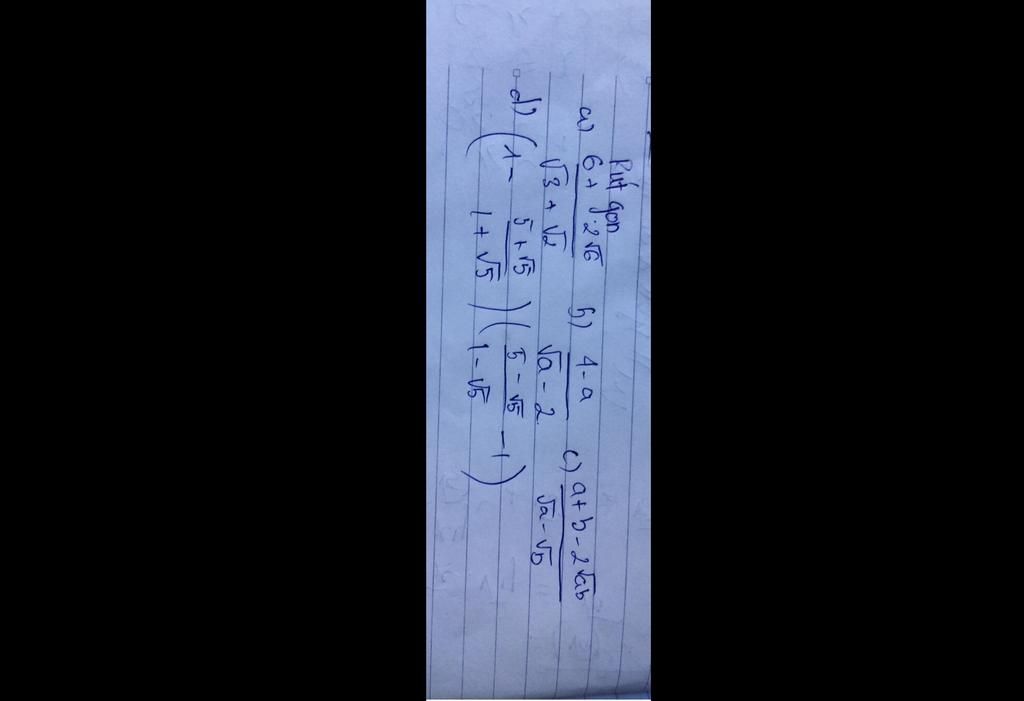 Rút gọn
a) \frac{6 + 2\sqrt{6}}{\sqrt{3} + \sqrt{2}} b) \frac{4 - a}{\sqrt{a} - 2} c) \frac{a + b - 2\sqrt{ab}}{\sqrt{a} - \sqrt{b}}
d) (1 - \frac{5 + \sqrt{5}}{1 + \sqrt{5}}) (\frac{5 - \sqrt{5}}{1 - \sqrt{5}} - 1)